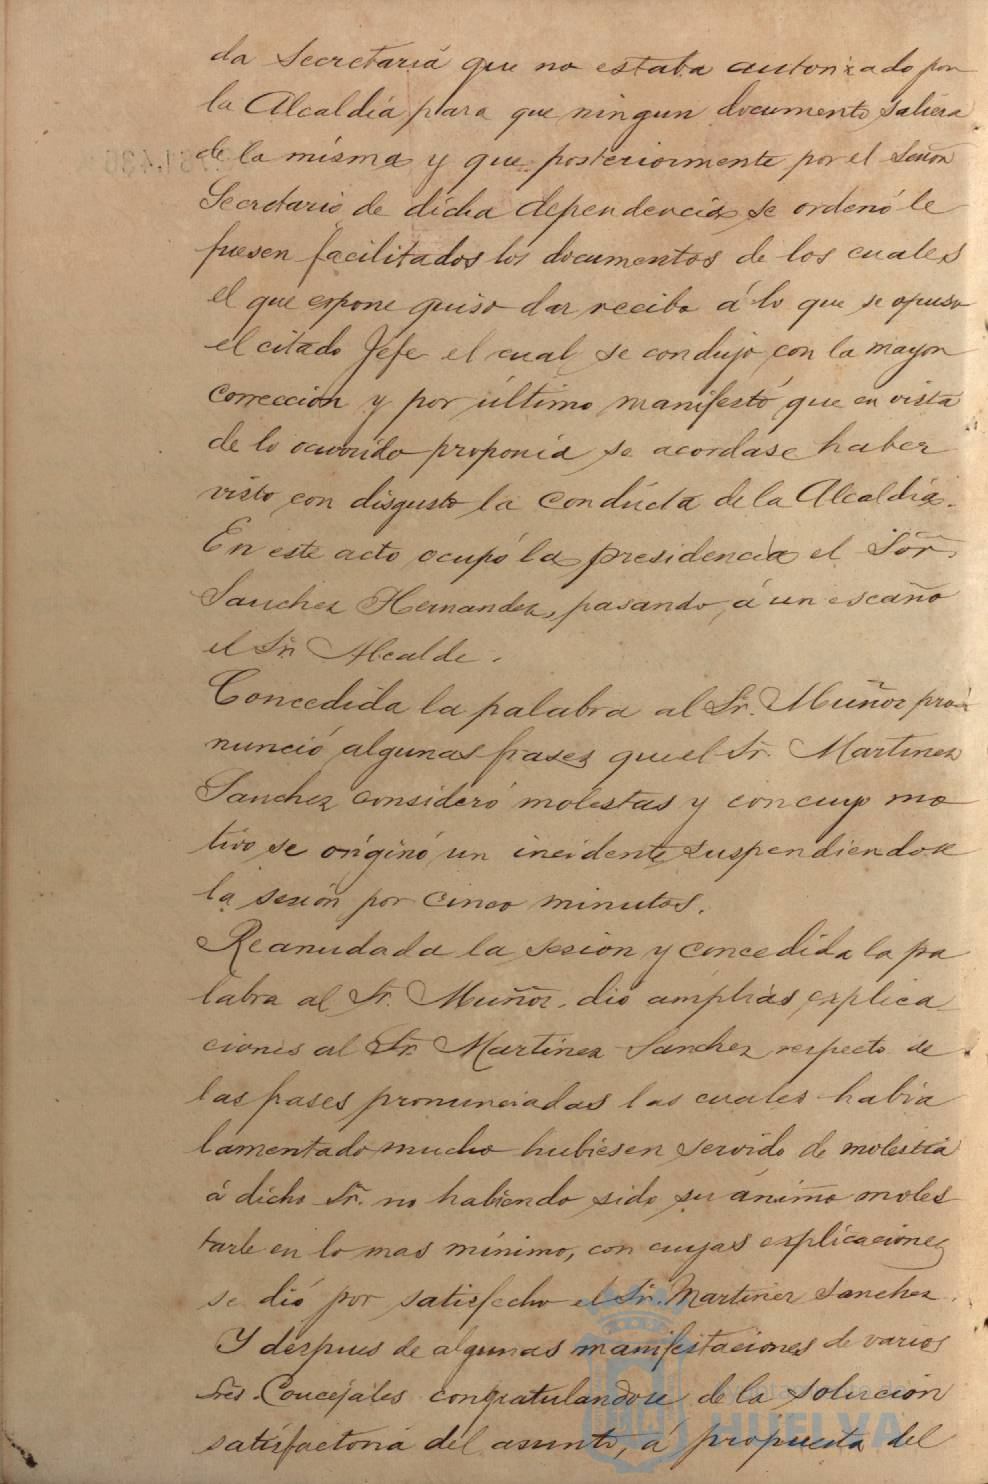 da Secretaría que no estaba autorizado por
la Alcaldía para que ningun documento saliera
de la misma y que posteriormente por el Señor
Secretario de dicha dependencia se ordenó le
fuesen facilitados los documentos de los cuales
el que expone quiso dar recibo á lo que se opuso
el citado Jefe el cual se condujo con la mayor
corrección y por último manifestó que en vista
de lo ocurrido proponia se acordase haber
visto con disgusto la conducta de la Alcaldía.
En este acto ocupó la presidencia el Sor.
Sanchez Hernandez, pasando á un escaño
el Sr. Alcalde.
Concedida la palabra al Sr. Muñoz pro-
nunció algunas frases que el Sr. Martinez
Sanchez consideró molestas y con cuyo mo
tivo se originó un incidente suspendiendose
la sesión por cinco minutos.
Reanudada la sesión y concedida la pa
labra al Sr. Muñoz, dió amplias explica
ciones al Sr. Martinez Sanchez respecto de
las frases pronunciadas las cuales habia
lamentado mucho hubiesen servido de molestia
á dicho Sr. no habiendo sido su ánimo moles
tarle en lo mas mínimo, con cuyas explicaciones
se dió por satisfecho el Sr. Martinez Sanchez.
Y despues de algunas manifestaciones de varios
Sres. Concejales congratulandose de la solución
satisfactoria del asunto, á propuesta del
HUELVA